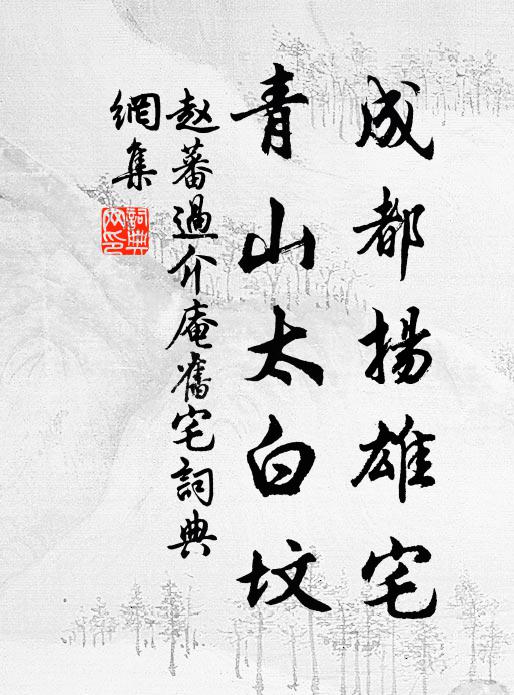 成都揚雄宅
青山太白坟
赵蕃過介庵舊宅詞典
網集
詞典網印